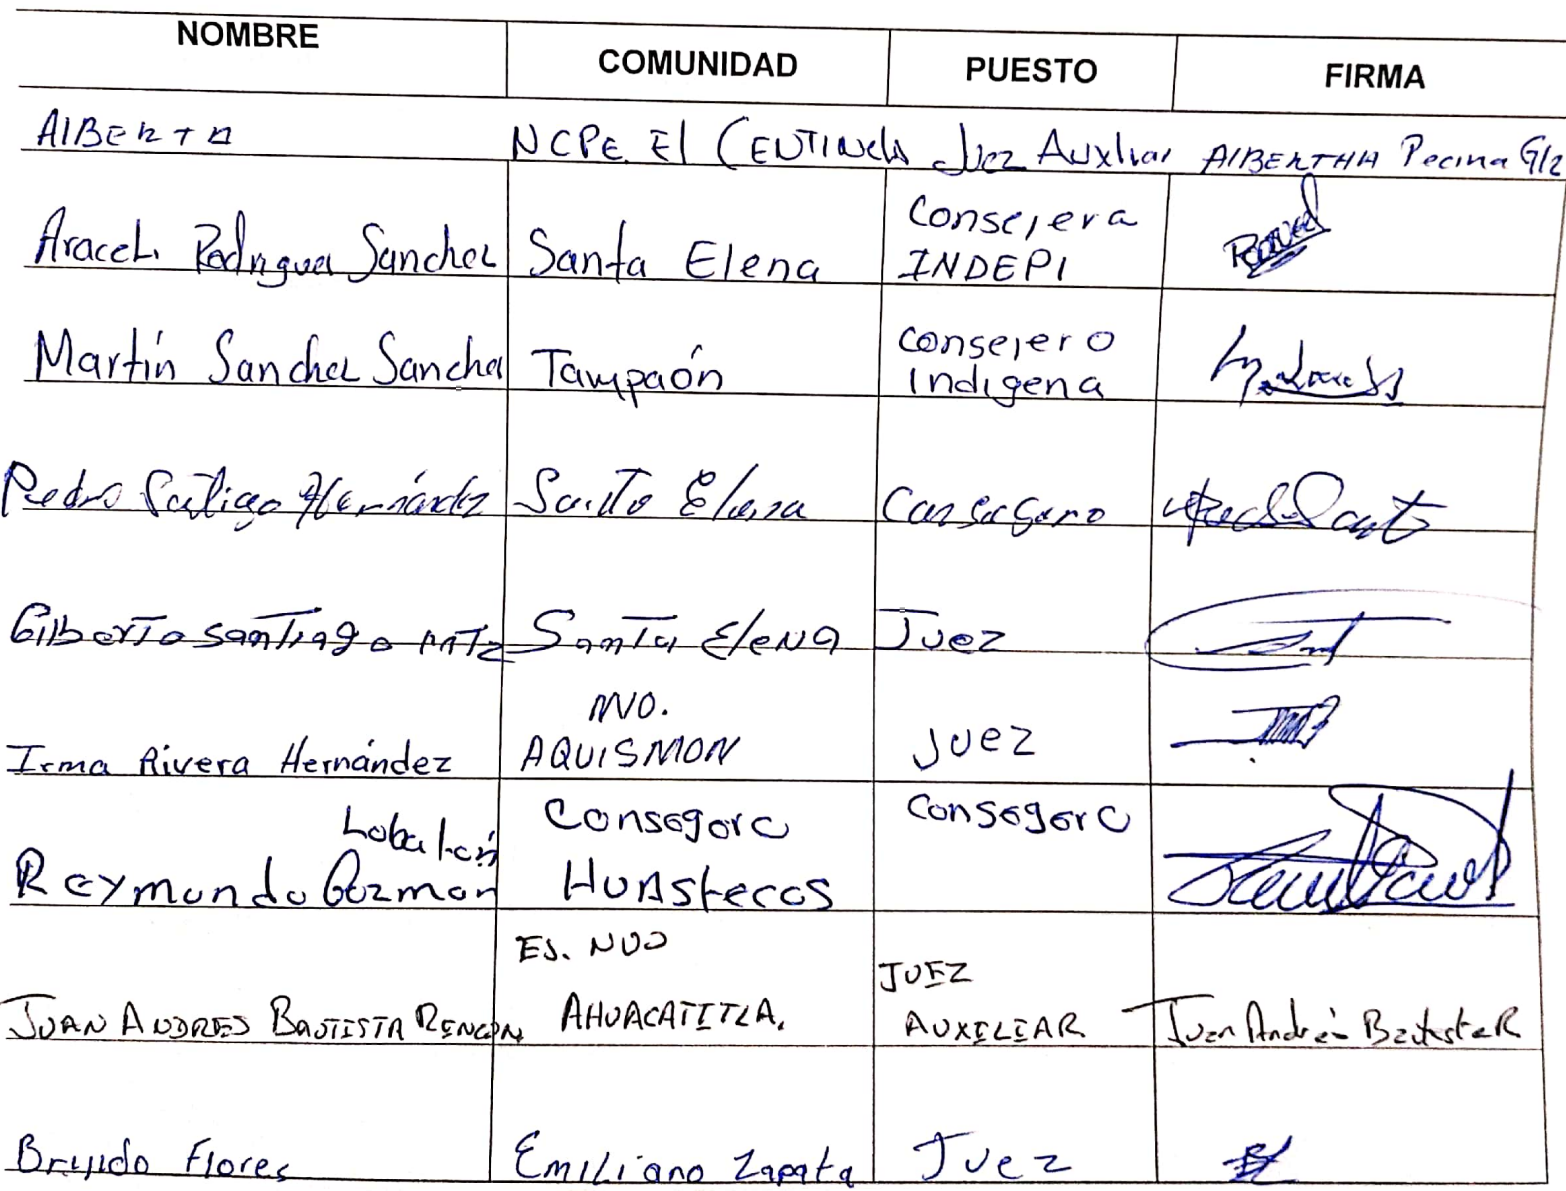 NOMBRE COMUNIDAD PUESTO FIRMA
AlBERTO NCPE El CENTINELA Juez Auxliar AlBERTHA Pecina Glz
Araceli Rodriguez Sanchez Santa Elena Consejera INDEPI
Martín Sanchez Sanchez Tampaón Consejero Indigena
Pedro Santiago Hernández Santa Elena Consegero
Gilberto santiago MTZ Santa Elena Juez
Irma Rivera Hernández NVO. AQUISMON Juez
Reymundo Guzman Consegero Huastecos Consegero
JUAN ANDRES BAUTISTA RENCON EJ. NUO AHUACATITLA. JUEZ AUXILIAR Juan Andrés Bautista R
Flores Emiliano Zapata Juez